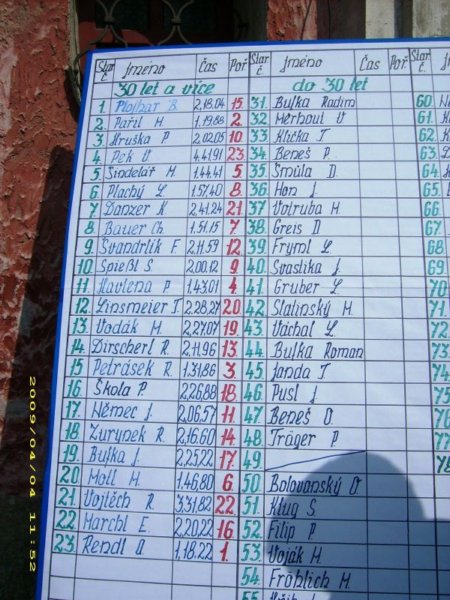 Star. č. Jméno Čas Poř. Star. č. Jméno Čas Poř. Star. č.
30 let a více do 30 let
1. Plojhar B. 2,18.04 15. 31. Bufka Radim 60.
2. Pařil M. 1.19.88 2. 32. Merhout V 61.
3. Hruška P 2.02.05 10. 33. Klička T 62.
4. Pek O 4.41.91 23. 34. Beneš P. 63.
5. Šindelář M. 1.44.41 5 35. Šmůla D. 64.
6. Plachý L. 1.57.40 8. 36. Hon J. 65.
7. Danzer K 2.41.24 21. 37. Votruba M. 66.
8. Bauer Ch. 1.51.15 7. 38. Greis D 67.
9. Švandrlík F. 2,11.59 12. 39. Fryml L. 68.
10. Spießl S. 2.00.12 9. 40. Svaslika J. 69.
11. Havlena P 1.43.01 4. 41. Gruber L. 70
12. Linsmeier T. 2.28,27 20 42. Slatinský M. 71.
13. Vodák M. 2.27.07 19. 43. Váchal L. 72.
14. Dirscherl R. 2,11,96 13. 44. Bufka Roman 73
15. Petrásek R. 1.31,86 3. 45. Janda T 74.
16. Škola P. 2,26,88 18. 46. Pusl J. 75
17. Němec J. 2,06,57 11. 47 Beneš O. 76
18. Zurynek R. 2,16.60 14. 48. Träger P 77
19. Bufka J. 2,25,22 17. 49. 78
20. Moll M. 1.46.80 6. 50. Bolovanský O.
21. Vojtěch R. 3.31,82 22. 51. Klug S
22. Marchl E. 2,20,22 16. 52. Filip P
23. Rendl O 1,18.22 1. 53. Voják M.
54. Fröhlich M.
55.
2009/04/04 11:52